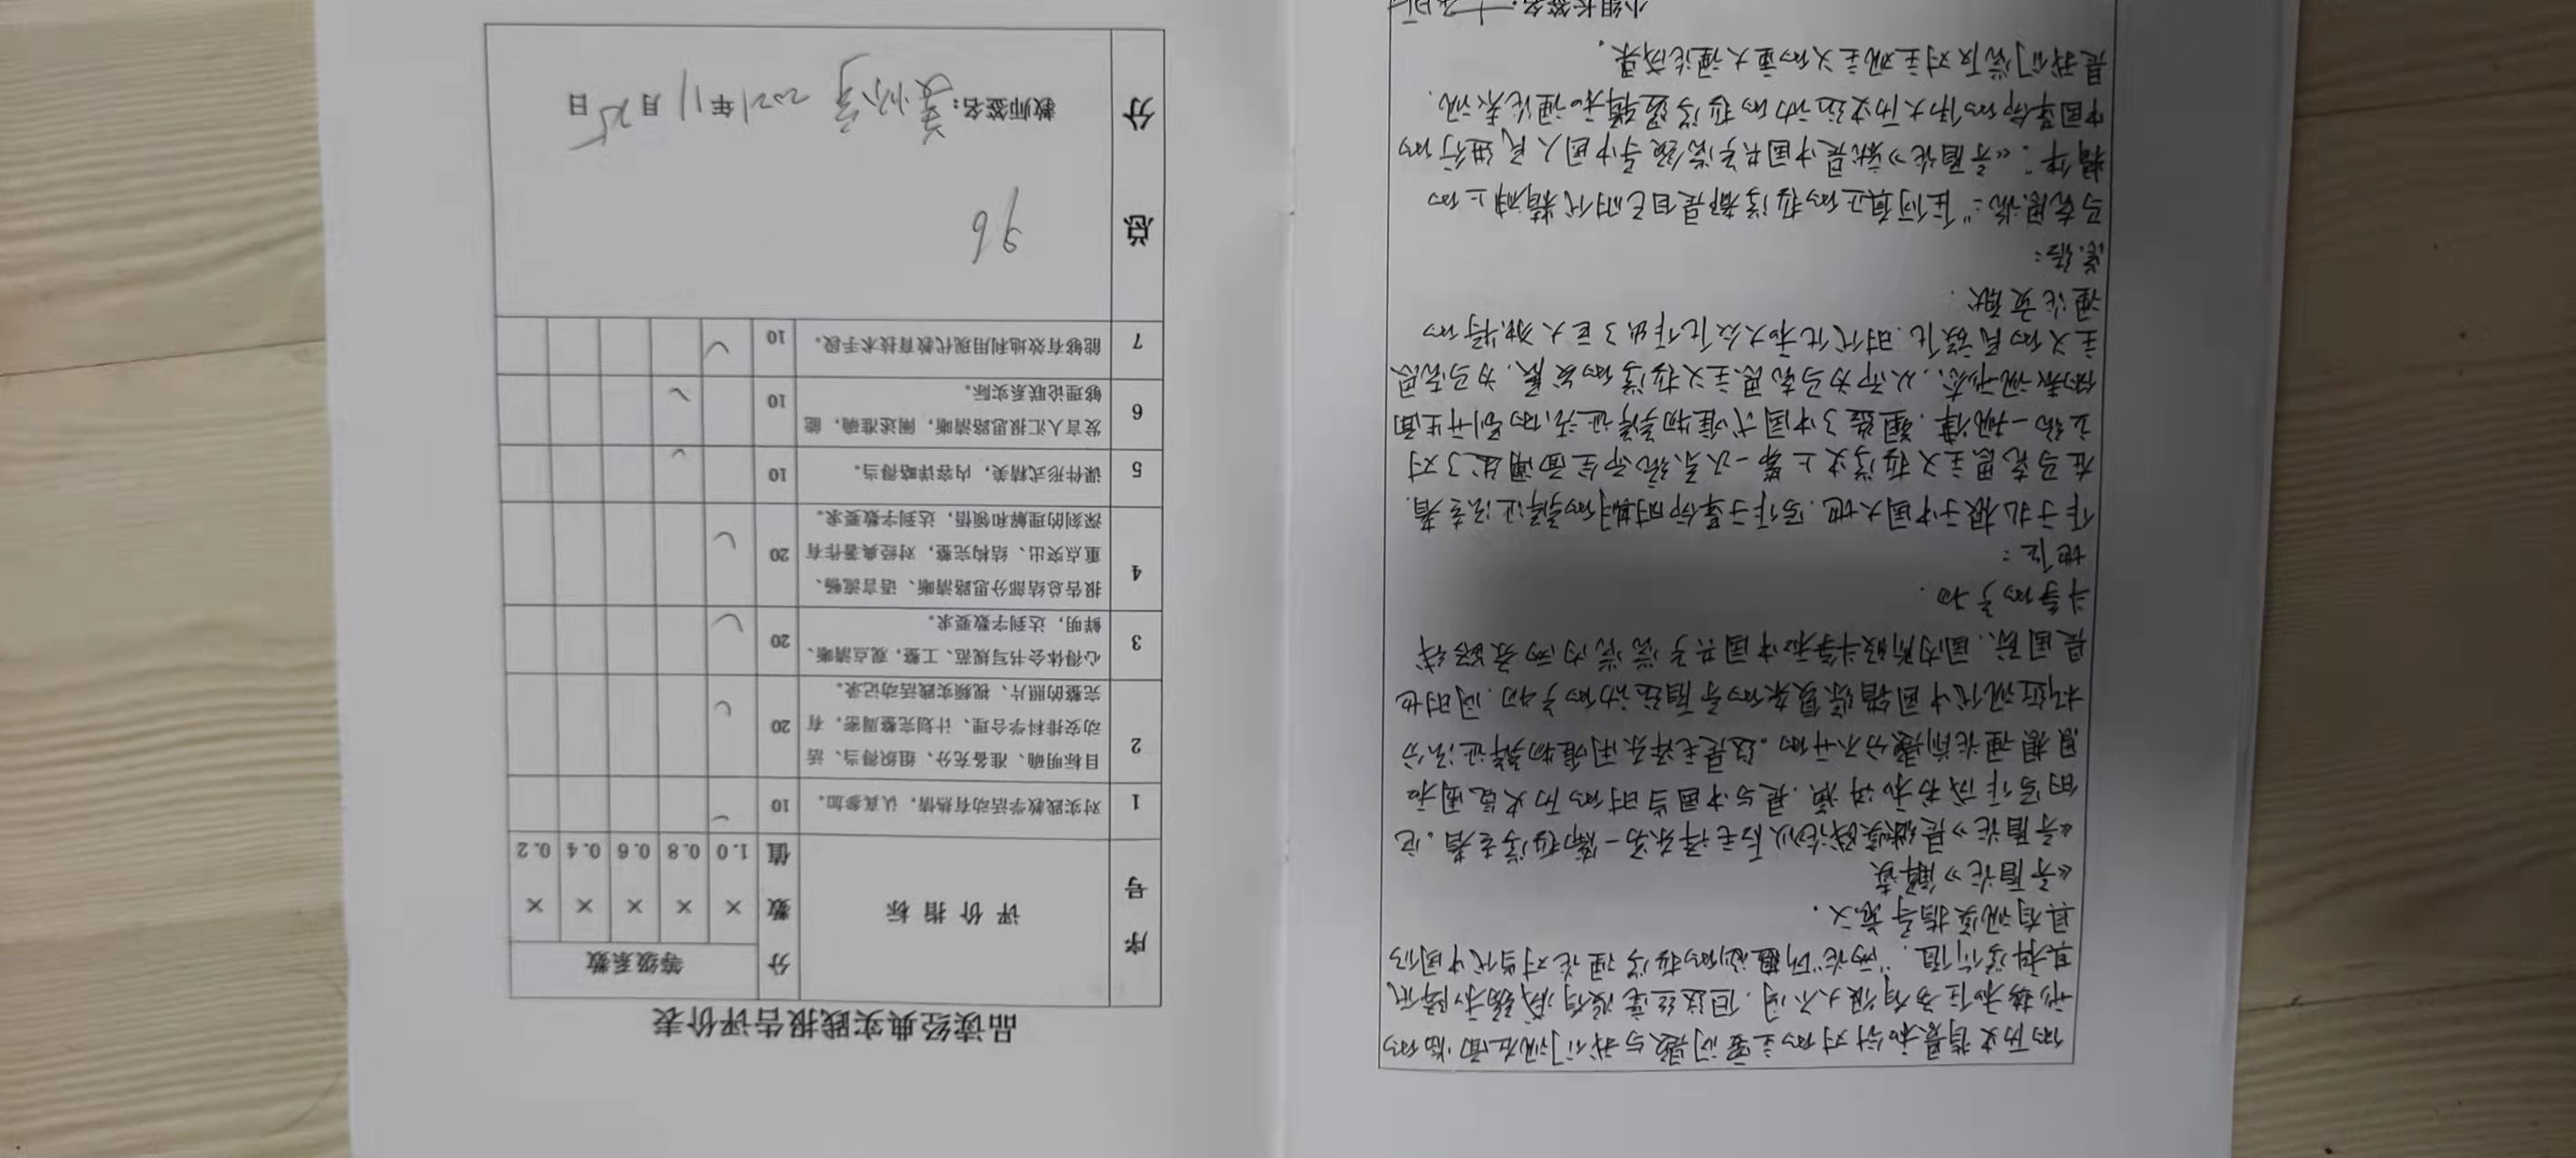 的历史背景和针对的主要问题与我们现在面临的
形势和任务有很大不同.但这丝毫没有减弱和降低
其科学价值."两论"所蕴涵的哲学理论对当代中国仍
具有现实指导意义.
《矛盾论》解读
《矛盾论》是继实践论以后毛泽东另一篇哲学名著。它
的写作成书和讲演.是与中国当时的历史意图和
思想理论前提分不开的。这是毛泽东用唯物辩证法分
析近现代中国错综复杂的矛盾运动的产物.同时也
是国际、国内阶级斗争和中国共产党党内两条路线
斗争的产物.
地位:
作于扎根于中国大地.写作于革命时期的辩证法名著.
在马克思主义哲学史上第一次系统而全面阐述了对
立统一规律.塑造了中国式唯物辩证法的别开生面
的表现形态、从而为马克思主义哲学的发展,为马克思
主义的民族化.时代化和大众化作出了巨大独特的
理论贡献.
总结:
马克思说:"任何真正的哲学都是自己时代精神上的
精华".《矛盾论》就是中国共产党领导中国人民进行的
中国革命的伟大历史运动的哲学逻辑和理论表现.
是我们党反对主观主义的重大理论成果.
小组长签名:
品读经典实践报告评价表
序号 评 价 指 标 分数值 等级系数
× 1.0 × 0.8 × 0.6 × 0.4 × 0.2
1 对实践教学活动有热情,认真参加。 10
2 目标明确、准备充分、组织得当、活
动安排科学合理、计划完整周密,有 20
完整的照片、视频实践活动记录。
3 心得体会书写规范、工整,观点清晰、 20
鲜明,达到字数要求。
4 报告总结部分思路清晰、语言流畅、
重点突出、结构完整,对经典著作有 20
深刻的理解和领悟,达到字数要求。
5 课件形式精美,内容详略得当。 10
6 发言人汇报思路清晰,阐述准确,能 10
够理论联系实际。
7 能够有效地利用现代教育技术手段。 10
总分 96
教师签名: 2021年11月25日